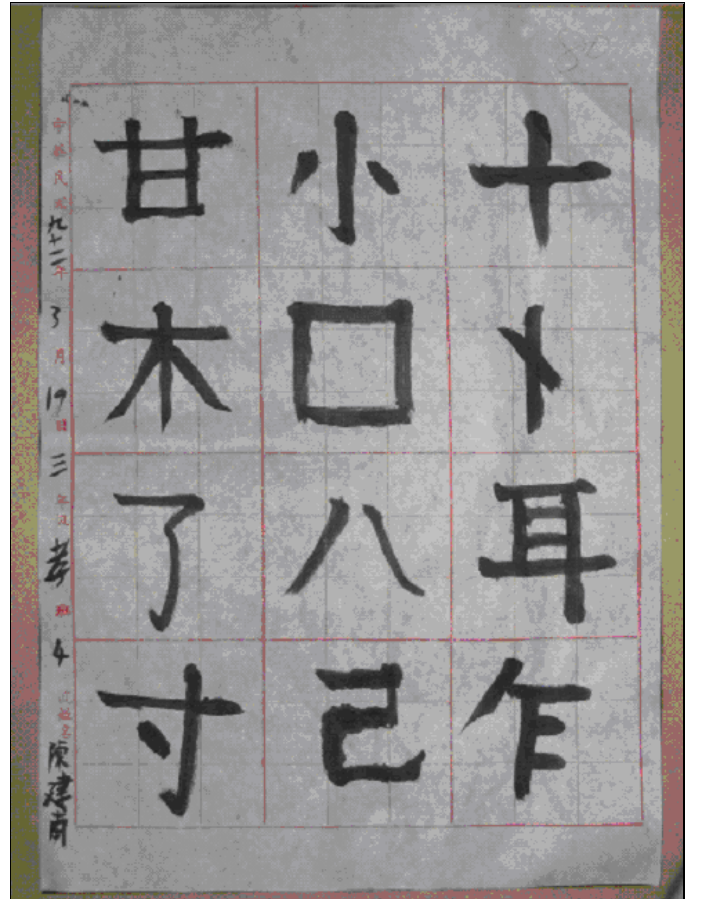 十卜耳乍
小口八己
甘木了寸
中華民國九十二年3月19日三年孝班4姓名陳建